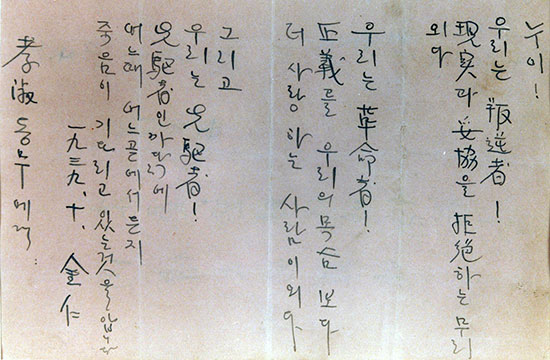 누이!
우리는 叛逆者!
現実과 妥協을 拒絶하는 무리
외다
우리는 革命者!
正義를 우리의 목숨 보다
더 사랑 하는 사람이외다
그리고
우리는 先駆者!
先駆者인 까닭에
어느때 어느곧에서든지
죽음이 기다리고 있는것을 압니다
一九三九、十、 金仁
孝淑 동무에게.